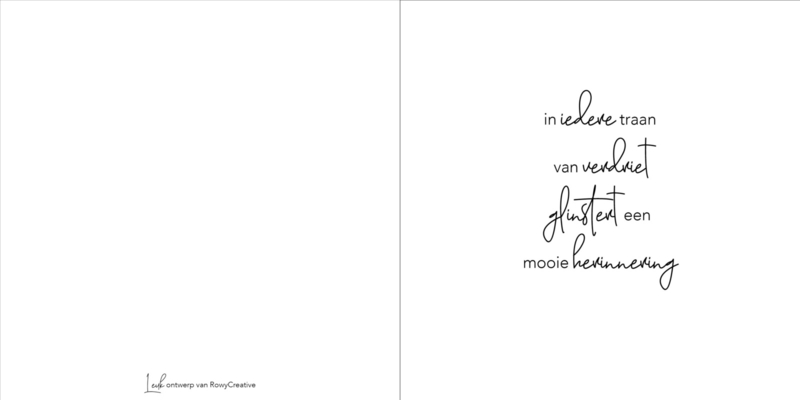 Leuk ontwerp van RowyCreative
in iedere traan
van verdriet
glinstert een
mooie herinnering